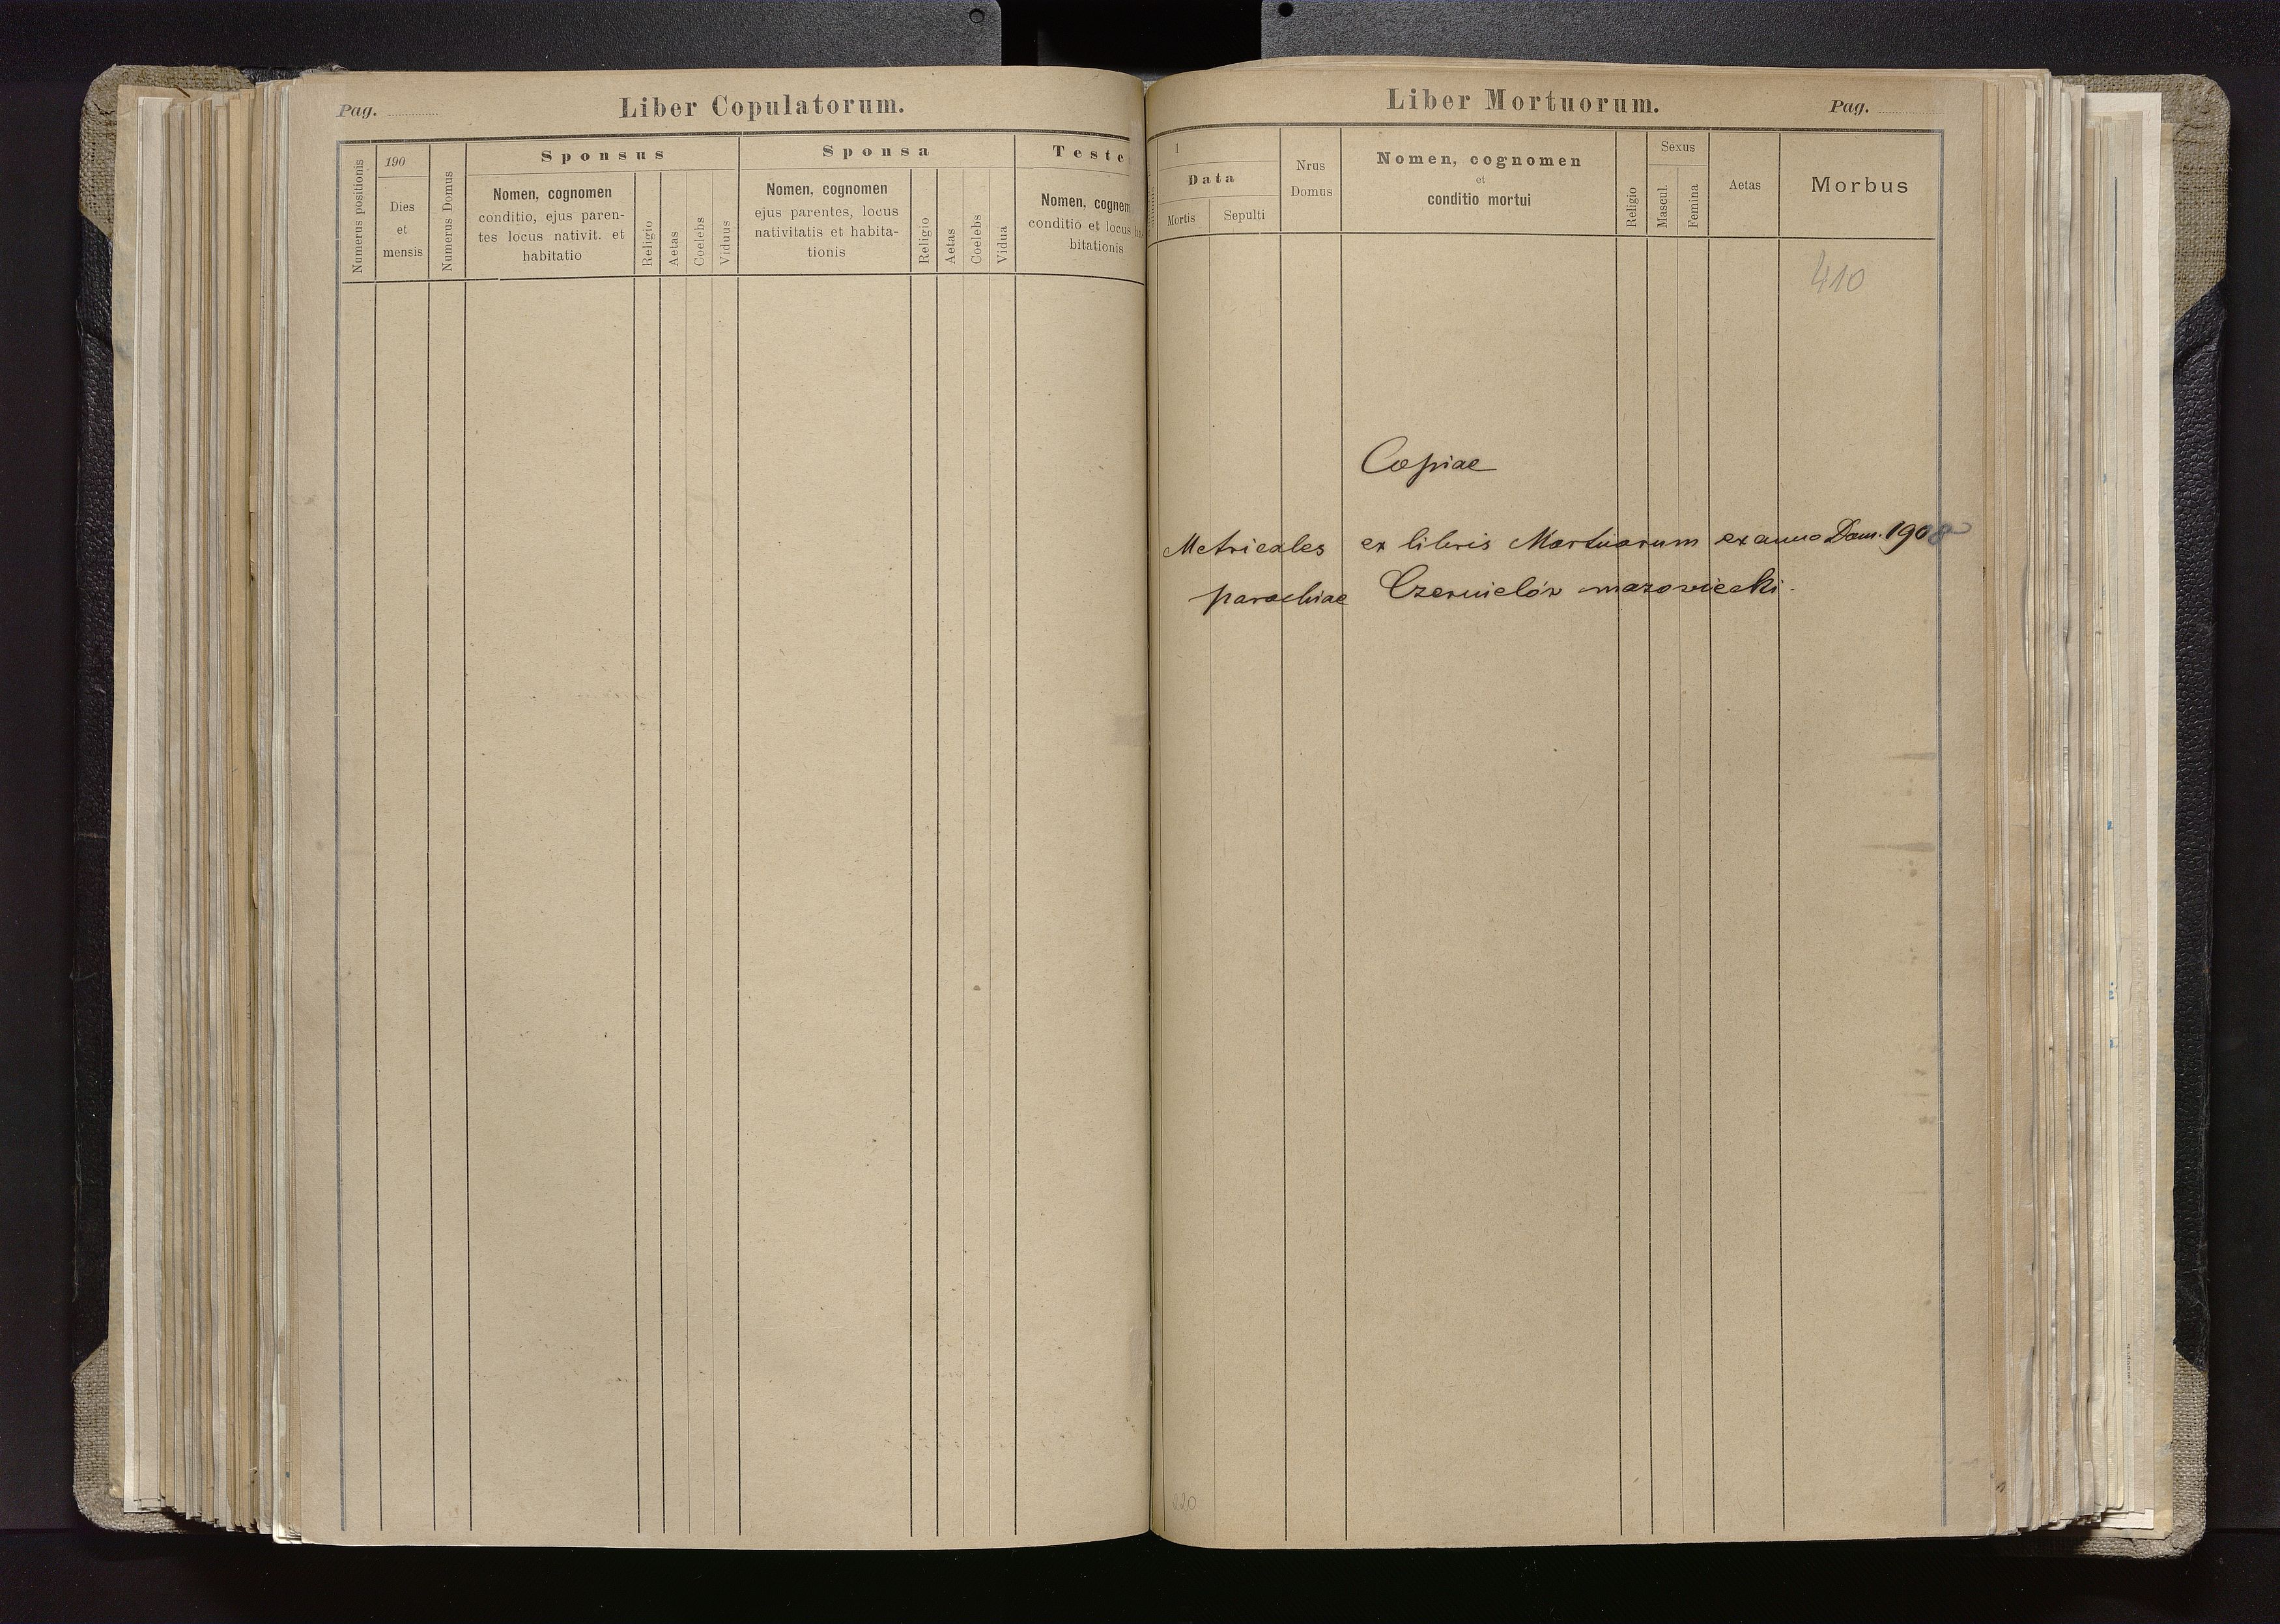 Pag.
Liber Copulatorum.
Numerus positionis
190
Dies
et
mensis
Numerus Domus
Sponsus
Nomen, cognomen
conditio, ejus paren-
tes locus nativit. et
habitatio
Religio
Aetas
Coelebs
Viduus
Sponsa
Nomen, cognomen
ejus parentes, locus
nativitatis et habita-
tionis
Religio
Aetas
Coelebs
Vidua
Teste
Nomen, cognem
conditio et locus ha-
bitationis
Liber Mortuorum.
Pag.
1
Data
Mortis
Sepulti
Nrus
Domus
Nomen, cognomen
et
conditio mortui
Religio
Sexus
Mascul.
Femina
Aetas
Morbus
410
Copiae
Metricales ex libris Mortuorum ex anno Dom. 1908
parochiae Czernielów mazowiecki.
220